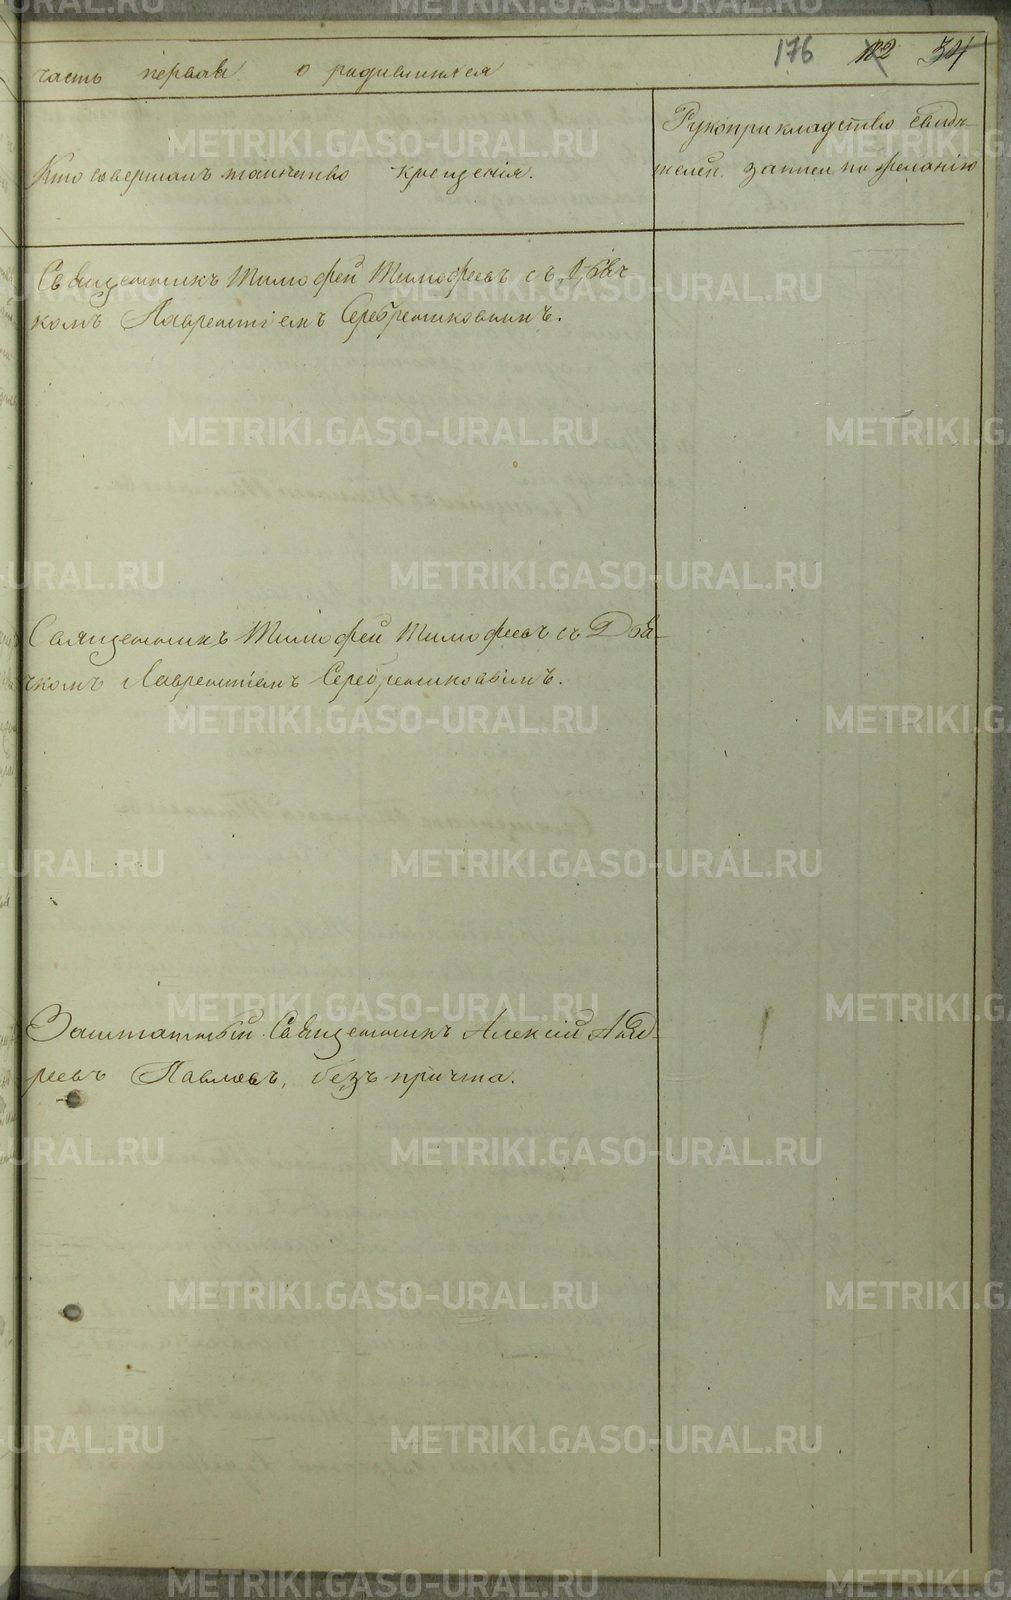 176 182 54
часть первая о родившихся
Кто совершалъ таинство крещенія.
Рукоприкладство свидѣ-
телей записи по желанію
Священникъ Тимофей Тимофеевъ съ Дьяч
комъ Лаврентіемъ Серебрениковымъ.
Священникъ Тимофей Тимофеевъ съ Дья-
чкомъ Лаврентіемъ Серебрениковымъ.
Заштатный Священникъ Алексій Анд-
реевъ Павловъ, безъ причта.
METRIKI.GASO-URAL.RU